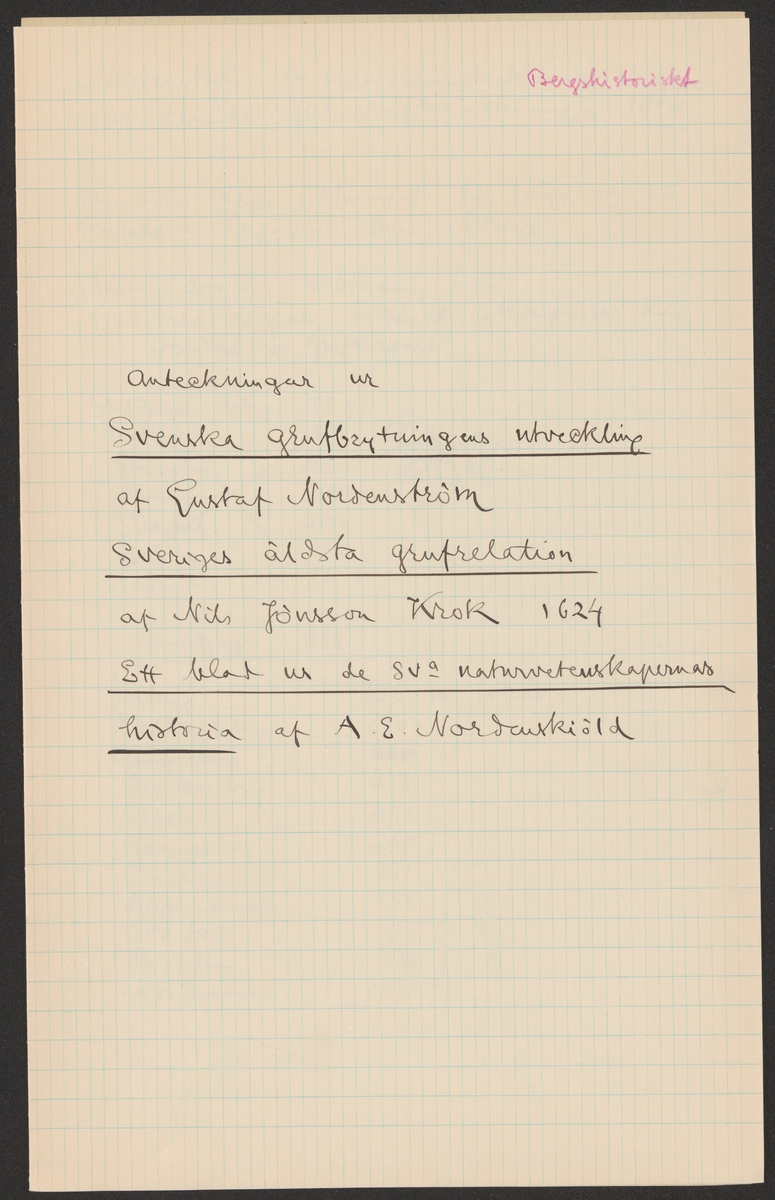 Bergshistoriskt
Anteckningar ur
Svenska grufbrytningens utveckling
af Gustaf Nordenström
Sveriges äldsta grufrelation
af Nils Jönsson Krok 1624
Ett blad ur de svª naturvetenskapernas
historia af A. E. Nordenskiöld